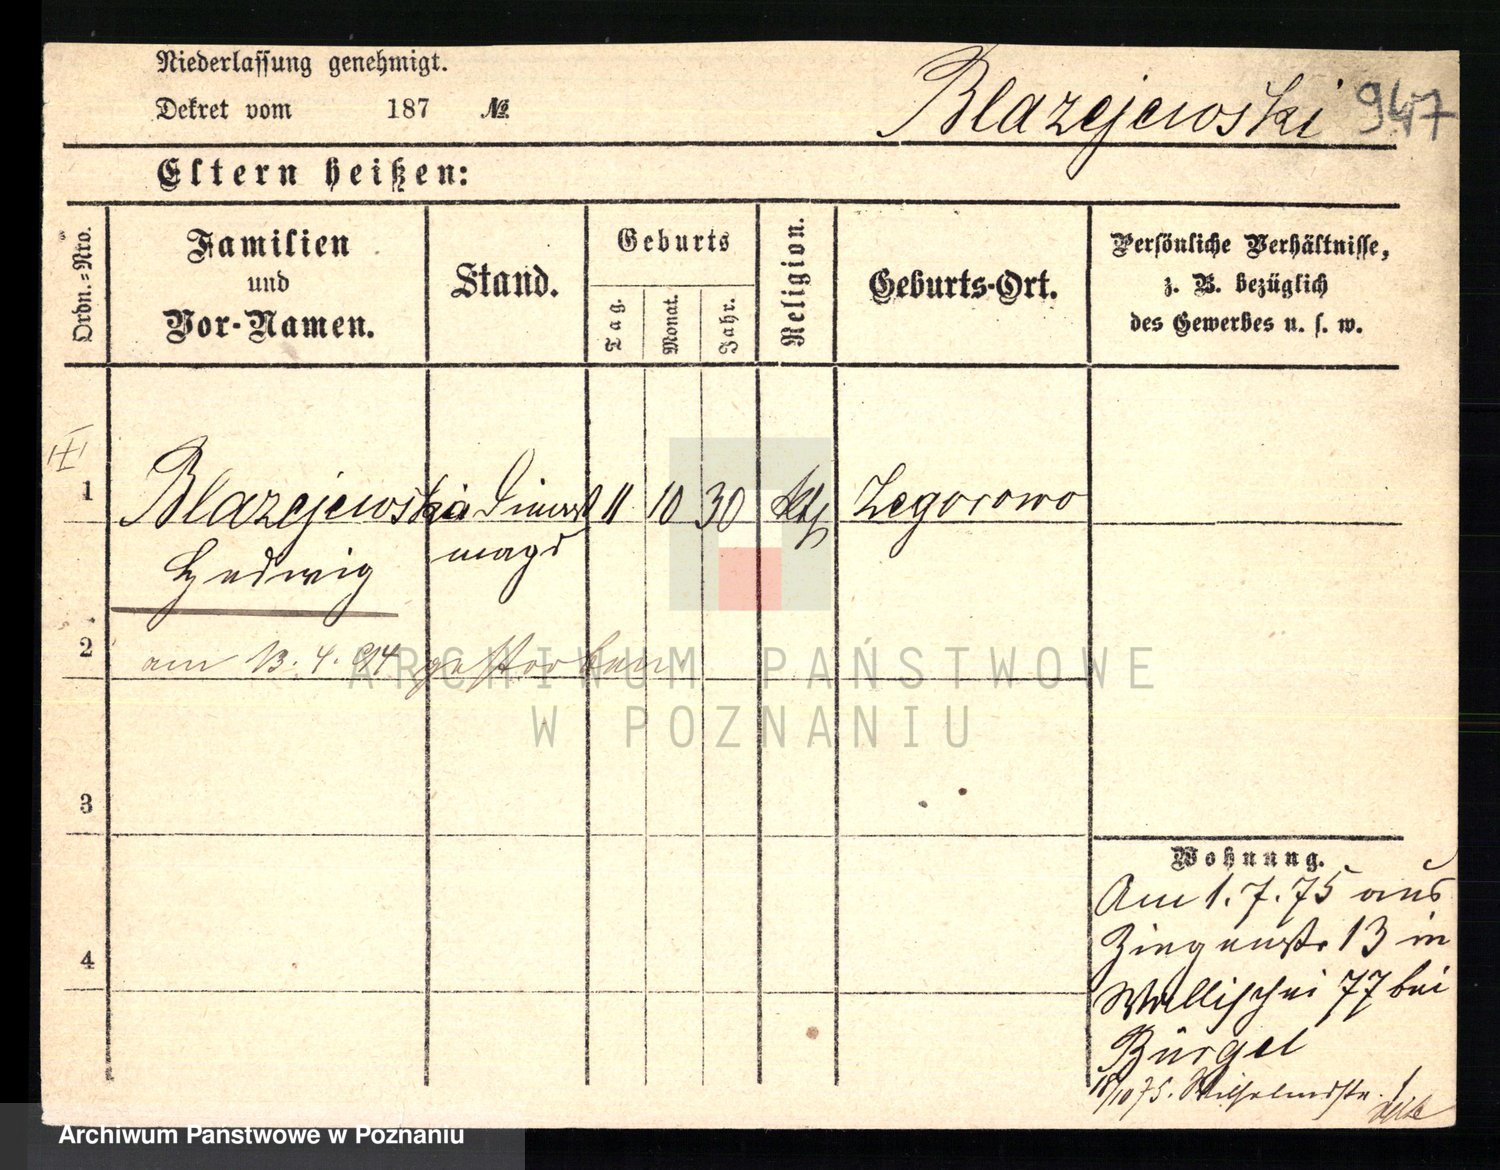 Niederlassung genehmigt.
Dekret vom 187 №
Blazejewski 947
Eltern heißen:
Ordn.-Nro.
Familien
und
Vor-Namen.
Stand.
Geburts
Tag.
Monat.
Jahr.
Religion.
Geburts-Ort.
Persönliche Verhältnisse,
z. B. bezüglich
des Gewerbes u. s. w.
1 Blazejewska Dienst 11 10 30 kth Zegorowo
Hedwig magd
2 am 13. 4. 914 gestorben.
3
4
Wohnung.
Am 1. 7. 75 aus
Ziegenstr 13 in
Wallischei 77 bei
Bürgel
18/10 75. Wilhelmstr.
ARCHIWUM PAŃSTWOWE
W POZNANIU
Archiwum Panstwowe w Poznaniu